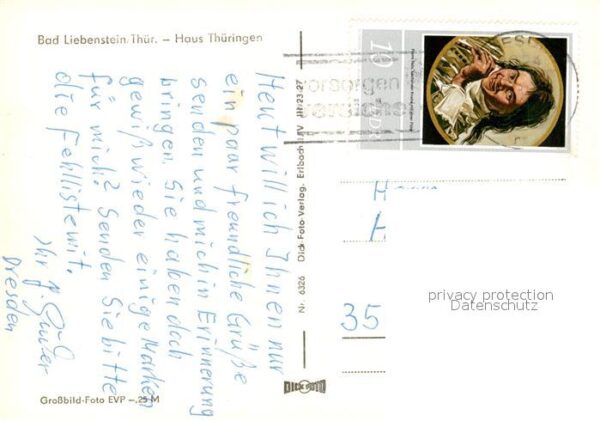 Bad Liebenstein. Thür. – Haus Thüringen
Heut will ich Ihnen nur
ein paar freundliche Grüße
senden und mich in Erinnerung
bringen. Sie haben doch
gewiß wieder einige Marken
für mich? Senden Sie bitte
die Fehlliste mit.
Ihr
Dresden
Nr. 6326 Dick-Foto-Verlag. Erlbach i. V
DICK FOTO
Großbild-Foto EVP –,25 M
10
DDR
vorsorgen
35
privacy protection
Datenschutz